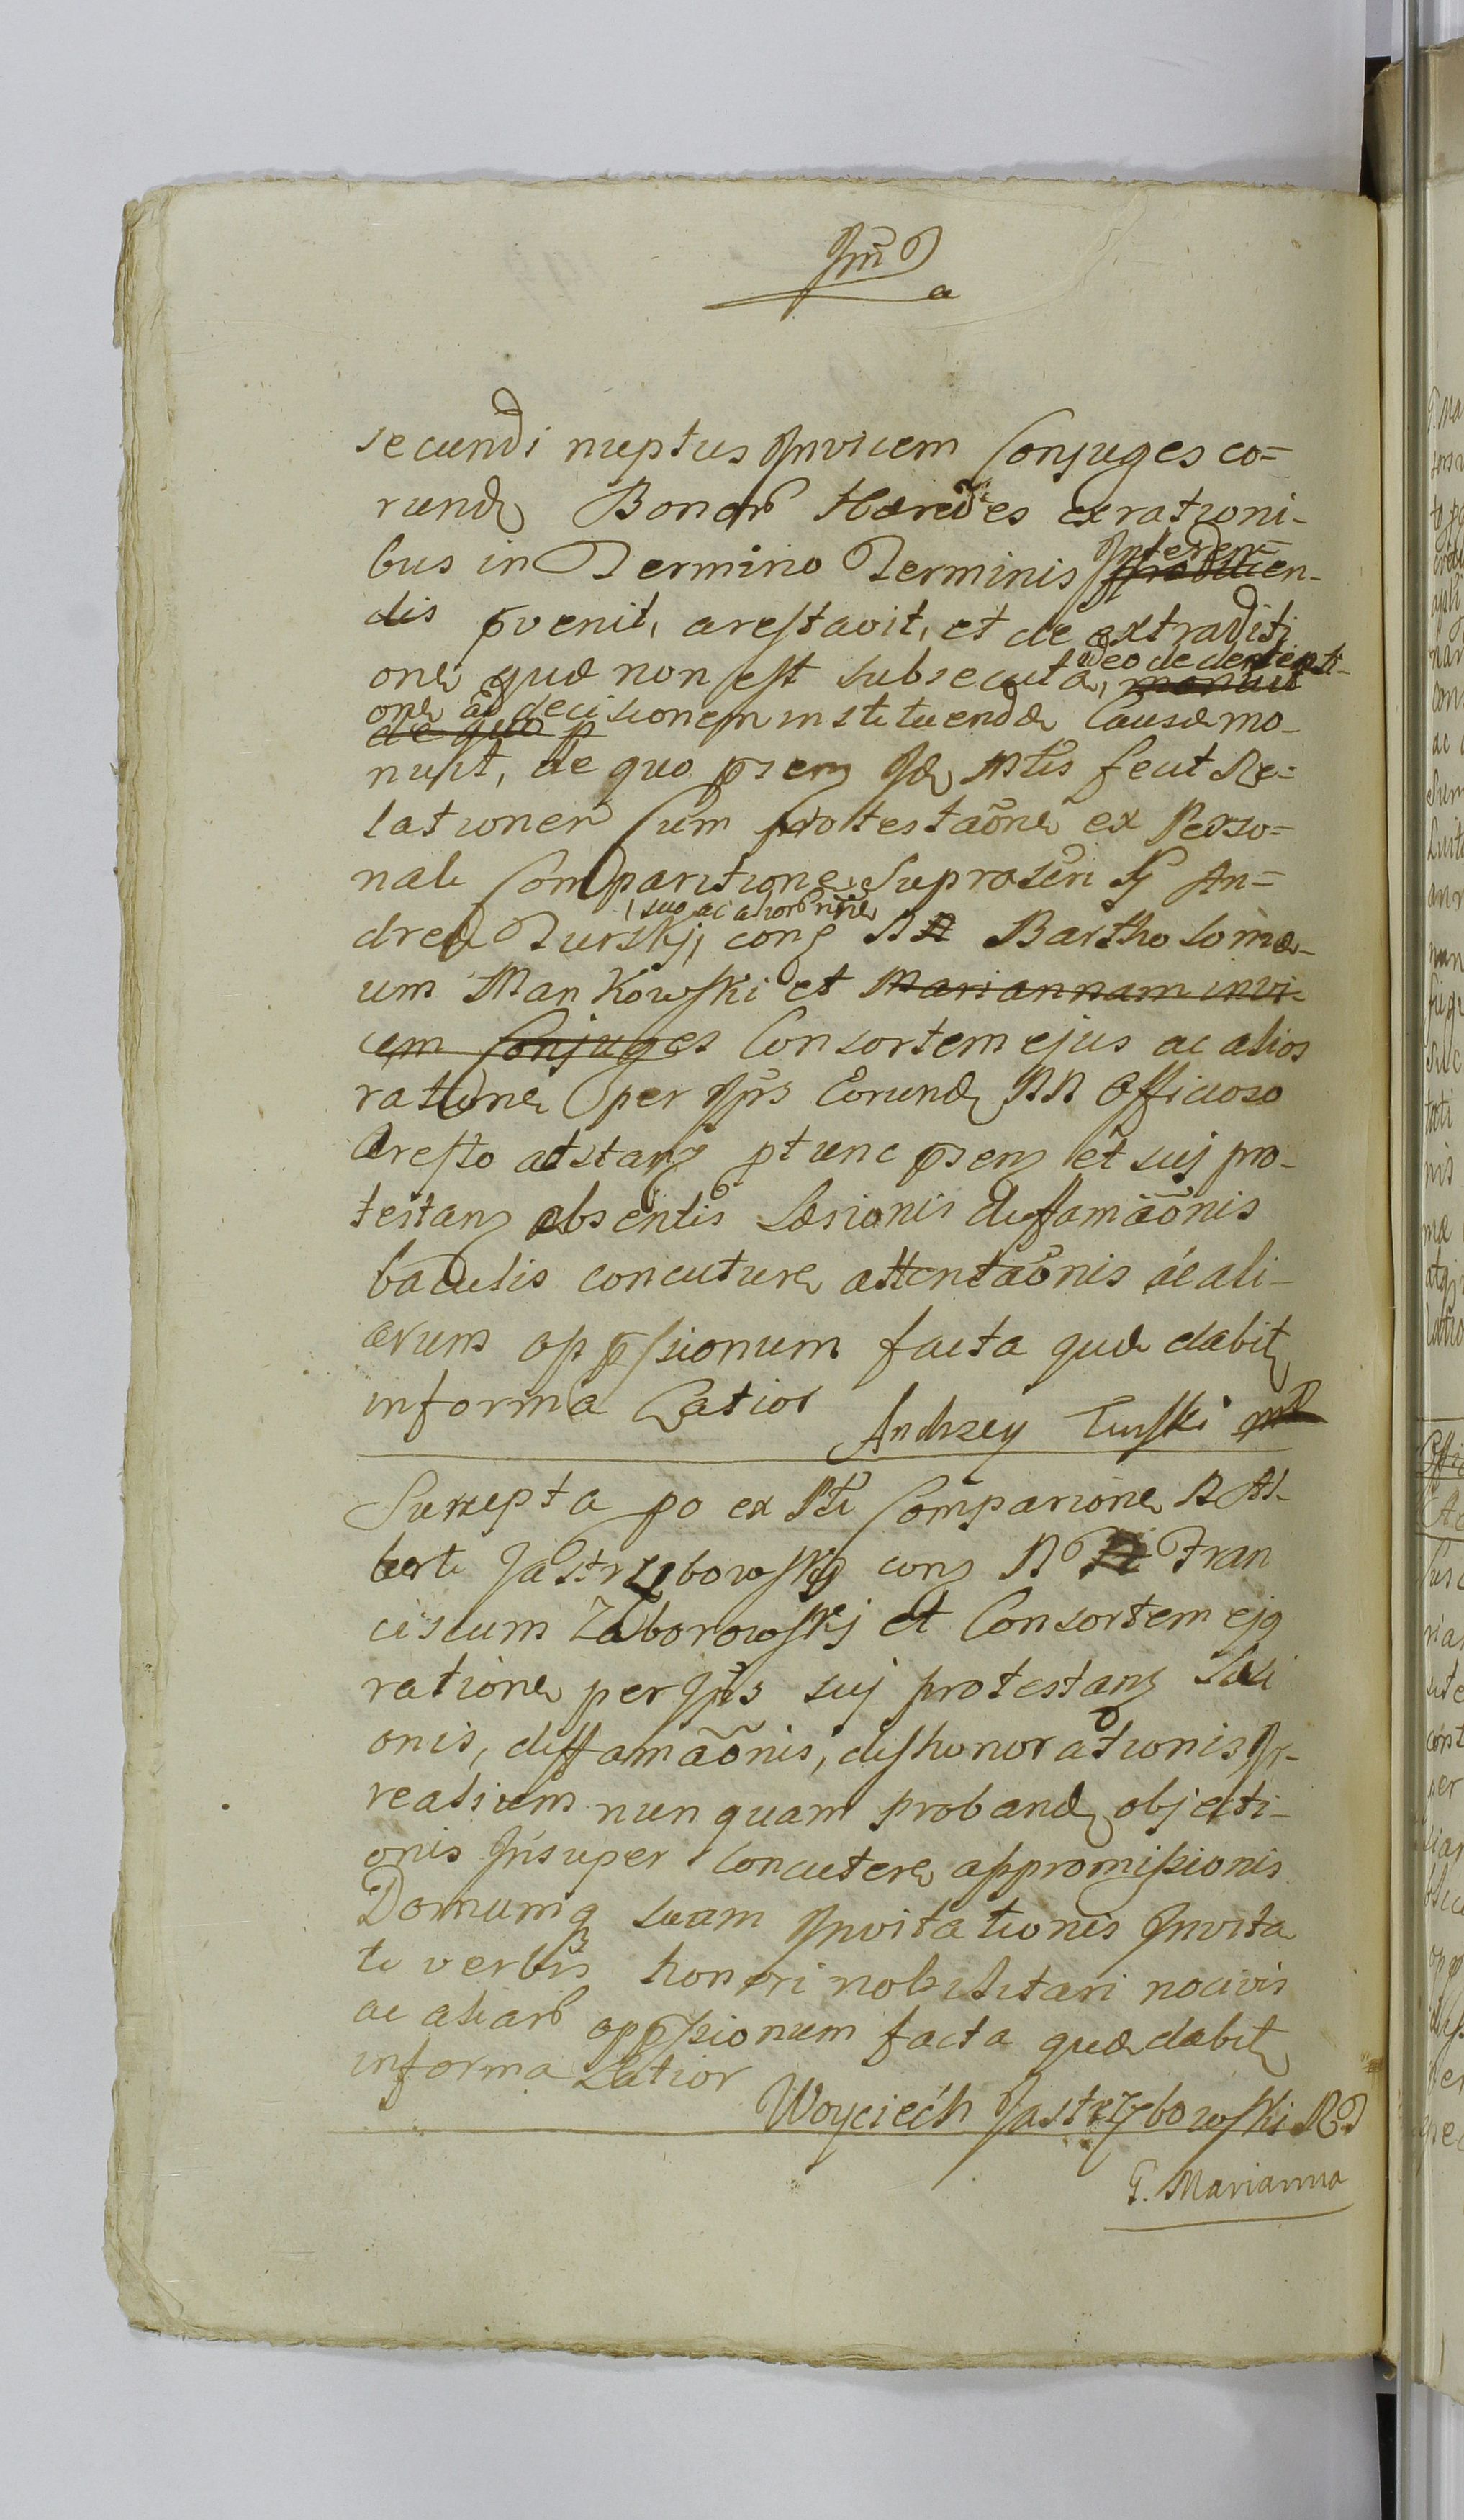 secundi nuptus Invicem Conjuges eo=
rund Bonor Hæredes ex rationi-
bus in Termino Terminis Inferen=
producen-
dis pvenit, arestavit, et de extraditi
one quæ non est subsecuta, ideo de detenti-
manuit
one ad decisionem instituendæ Causæ mo-
de quo p
nuit, de quo psens Id Mtis fecit Re=
lationem Cum protestaõne ex Perso=
nali Comparitione Suprascri G An=
suo ac alior nne
dreæ Turskj, cong NN Bartholomæ-
um Mankowski et Mariannam invi-
cem Conjuges Consortem ejus ac alios
ratione per Ips Eorund NN Officioso
Aresto adstang ptunc psens et suj pro-
testans absentis Læsionis diffamaõnis
baculis concutere attentaõnis ac ali-
arum oppssionum facta quæ dabit
in forma Latior Andrzey Turski mp
Suscepta po ex Pli Comparione N Al-
berti Jastrzębowskj cong N N Fran
ciscum Zaborowskj et Consortem ejq
ratione per Ips suj protestans Læsi
onis, diffamaõnis, dishonorationis Ir-
realium nunquam proband objecti-
onis Insuper Concutere appromissionis
Domumq suam Invitationis Invita
ti verbis honori nobilitari nocivis
ac aliar oppssionum facta quæ dabit
in forma Latior
Woyciech Jastrzębowski RP
G. Marianna